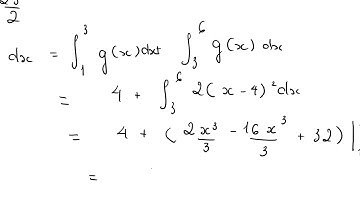 2
dx = ∫_1^3 g(x) dx + ∫_3^6 g(x) dx
= 4 + ∫_3^6 2(x-4)^2 dx
= 4 + ( 2x^3/3 - 16x^3/3 + 32 ) |
=